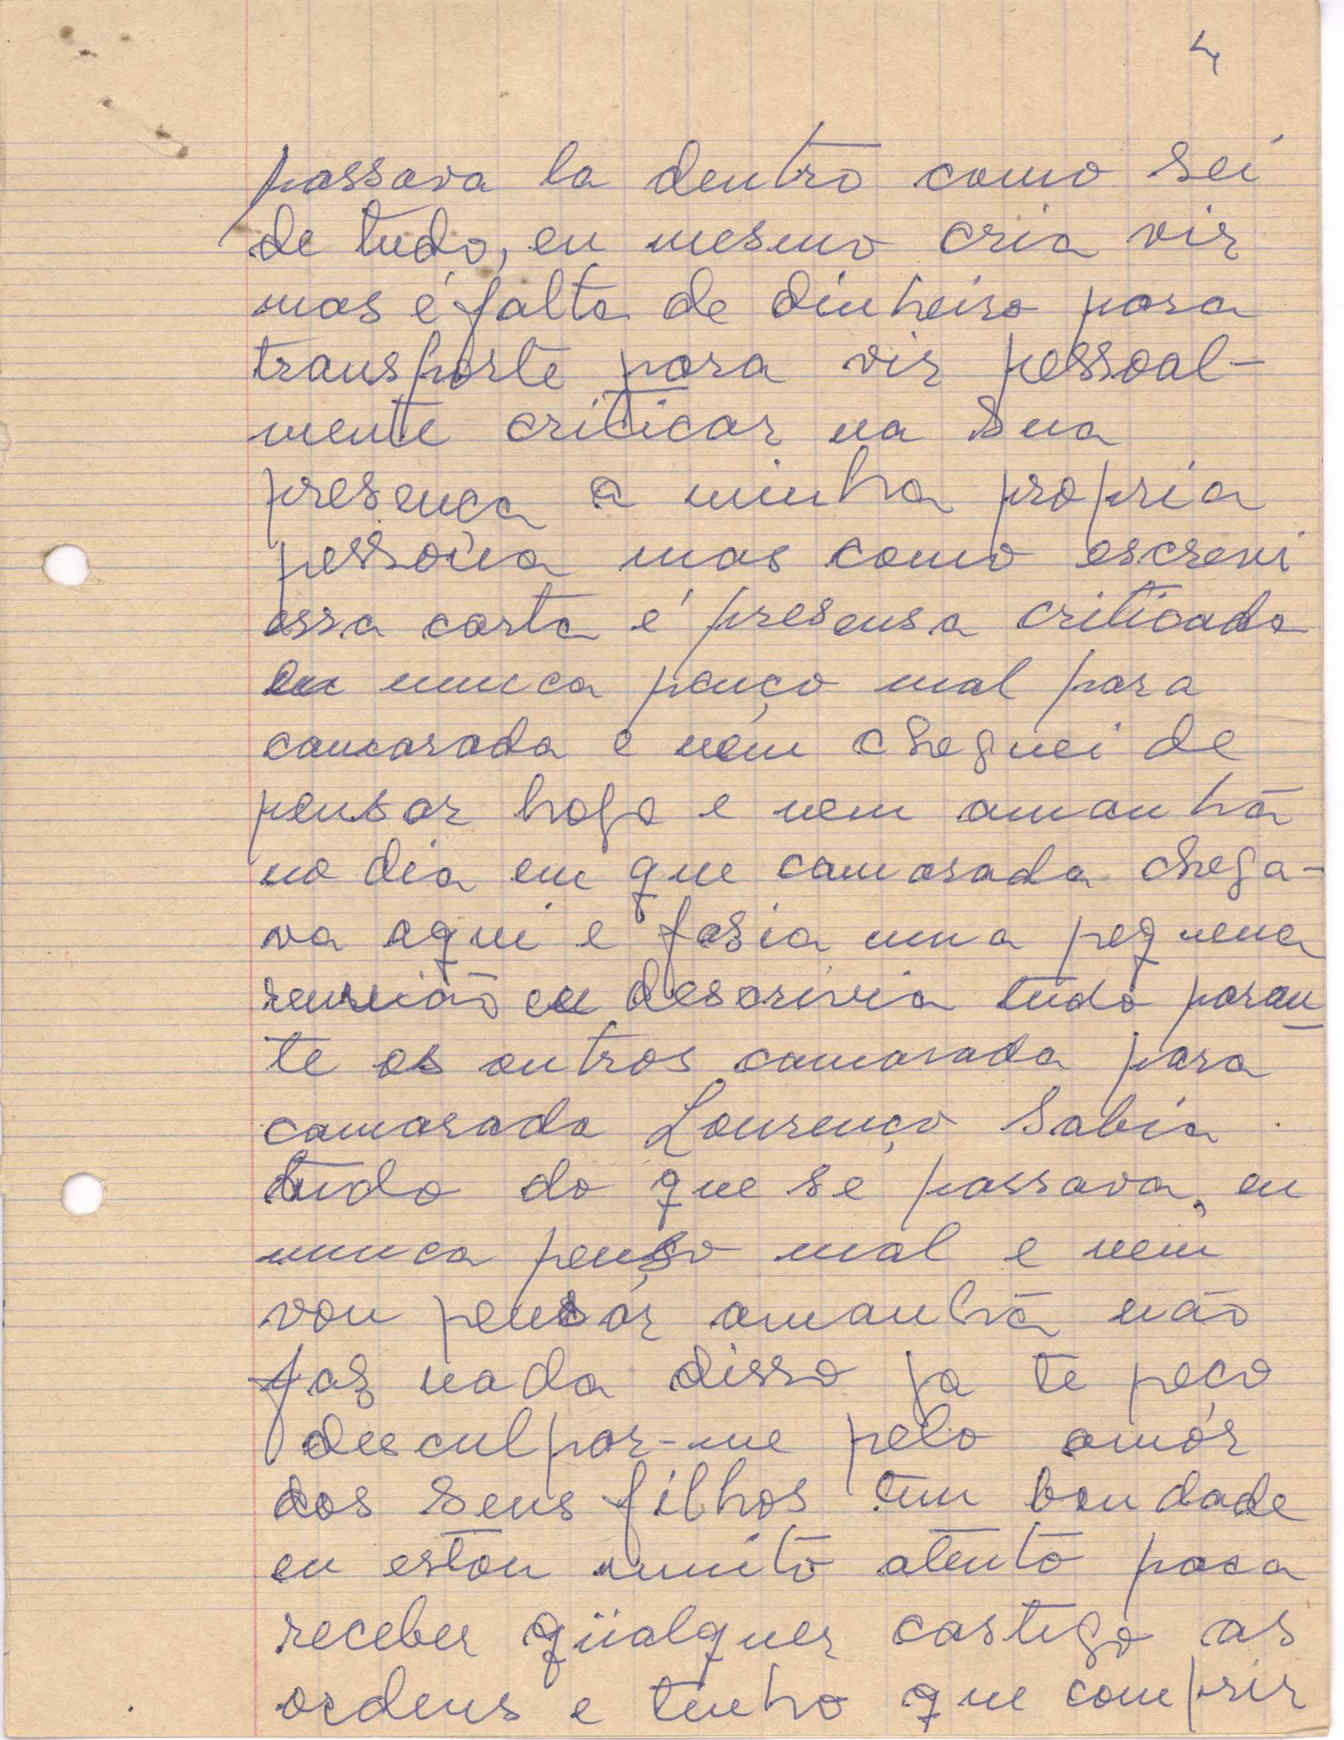 4
passava la dentro como sei
de tudo, eu mesmo cria vir
mas é falta de dinheiro para
transporte para vir pessoal-
mente criticar na sua
presença a minha propria
pessoùa mas como escrevi
essa carta é presensa criticada
eu nunca penço mal para
camarada e nem cheguei de
pensar hoje e nem amanhã
no dia em que camarada chega-
va aqui e fasia uma pequena
reunião eu descrivia tudo paran
te os outros camarada para
camarada Lourenço sabia
tudo do que se passava, eu
nunca penso mal e nem
vou pensár amanhã não
faz nada disso ja te peço
desculpar-me pelo amór
dos seus filhos tem bondade
eu estou muito atento para
receber qüalquer castigo as
ordens e tenho que comprir